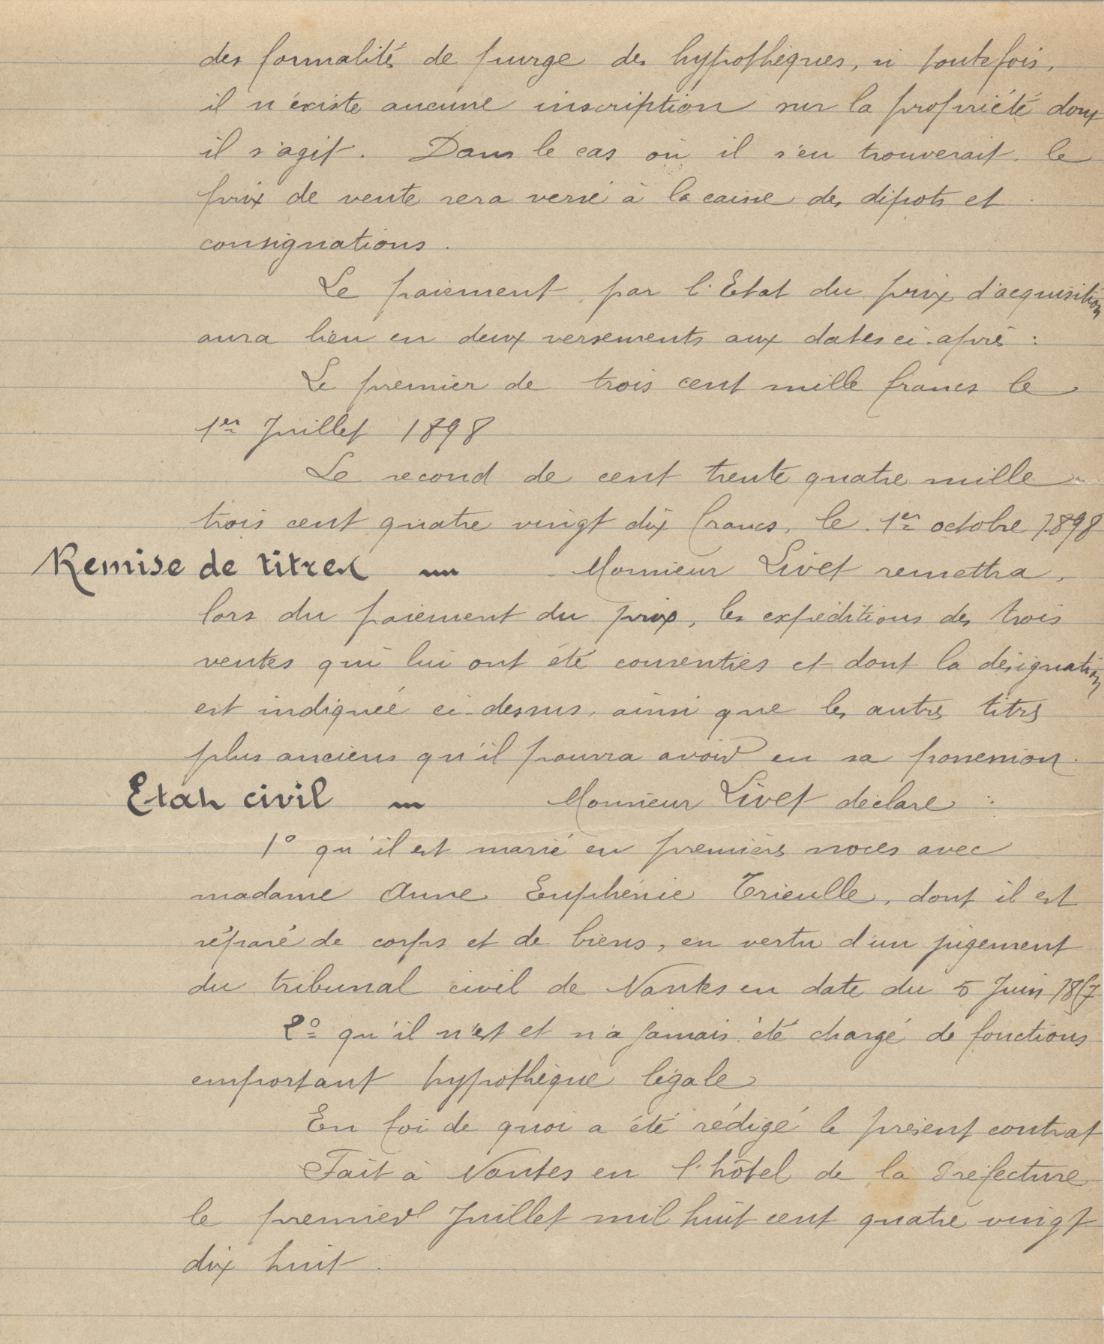 des formalités de purge des hypothèques, si toutefois,
il n'éxiste aucune inscription sur la propriété dont
il s'agit. Dans le cas où il s'en trouverait, le
prix de vente sera versé à la caisse des dépots et
consignations.
Le paiement par l'Etat du prix d'acquisition
aura lieu en deux versements aux dates ci-après :
Le premier de trois cent mille francs le
1er Juillet 1898
Le second de cent trente quatre mille
trois cent quatre vingt dix francs, le 1er octobre 1898
Remise de titres — Monsieur Livet remettra,
lors du paiement du prix, les expéditions des trois
ventes qui lui ont été consenties et dont la désignation
est indiquée ci-dessus, ainsi que les autres titres
plus anciens qu'il pourra avoir en sa possession.
Etat civil — Monsieur Livet déclare :
1º qu'il est marié en premières noces avec
madame Anne Euphémie Trieulle, dont il est
séparé de corps et de biens, en vertu d'un jugement
du tribunal civil de Nantes en date du 5 Juin
2º qu'il n'est et n'a jamais été chargé de fonctions
emportant hypothèque légale
En foi de quoi a été rédigé le présent contrat
Fait à Nantes en l'hôtel de la Préfecture
le premier Juillet mil huit cent quatre vingt
dix huit.